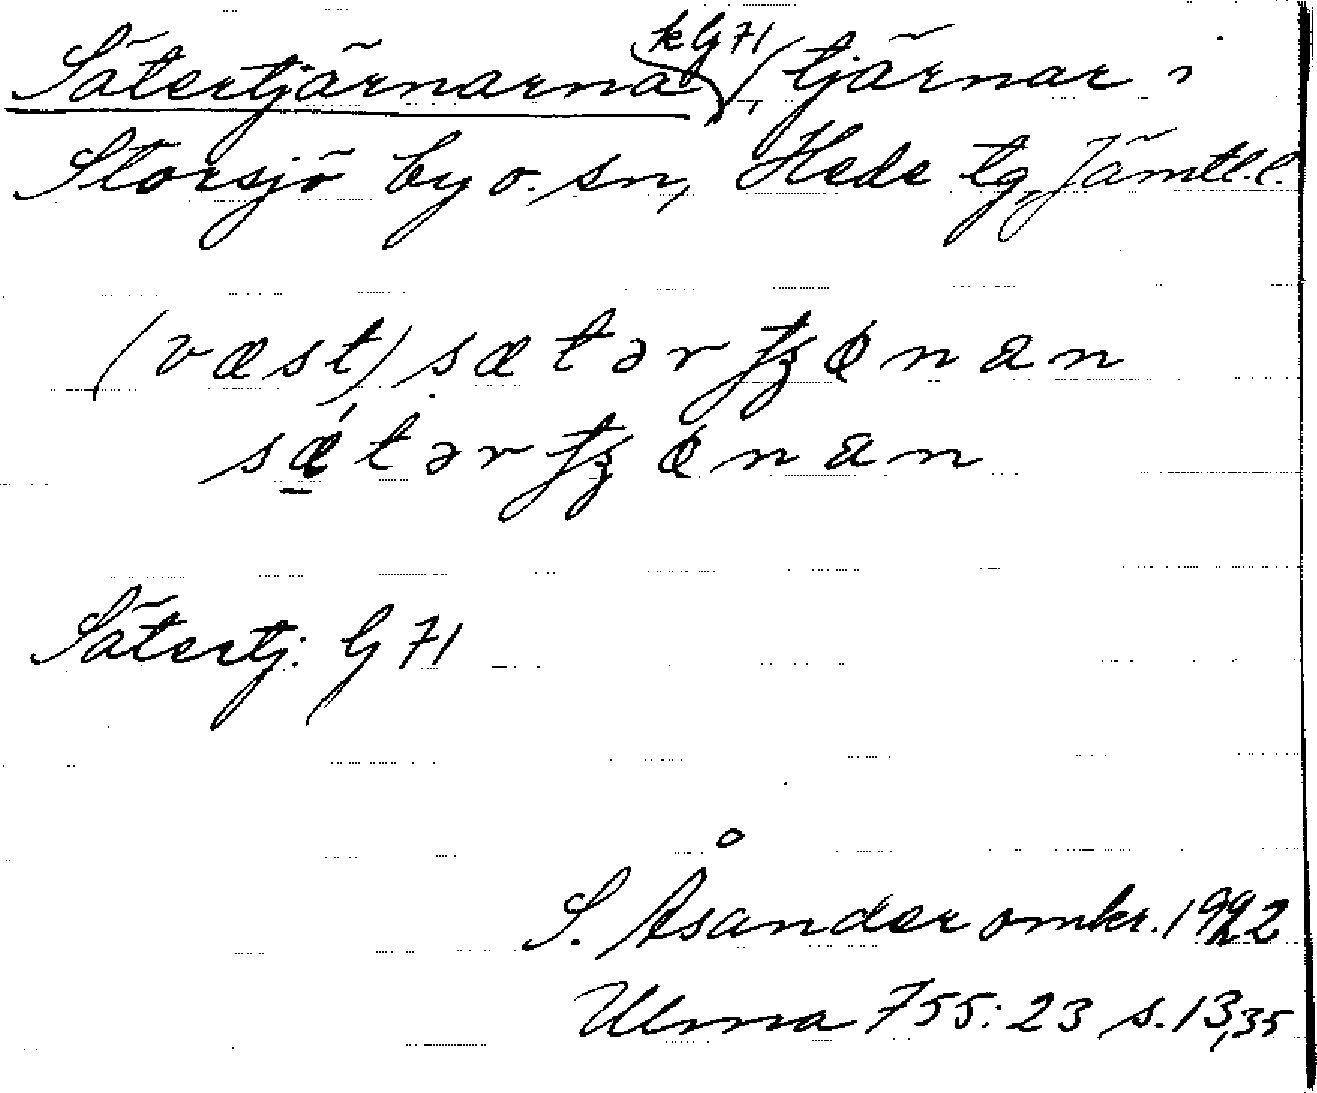 Sätertjärnarna kG71, tjärnar i
Storsjö by o. sn, Hede tg, Jämtl. l.
(væst) sætər
sǽtər
Sätertj. G 71
S. Åsander omkr. 1922
Ulma 755:23 s. 13, 35